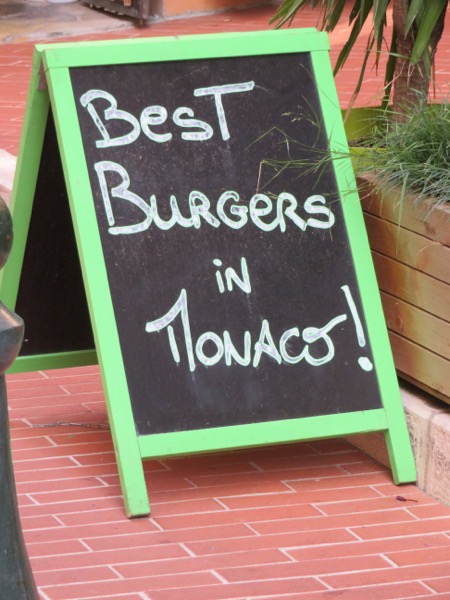 Best
Burgers
in
Monaco!